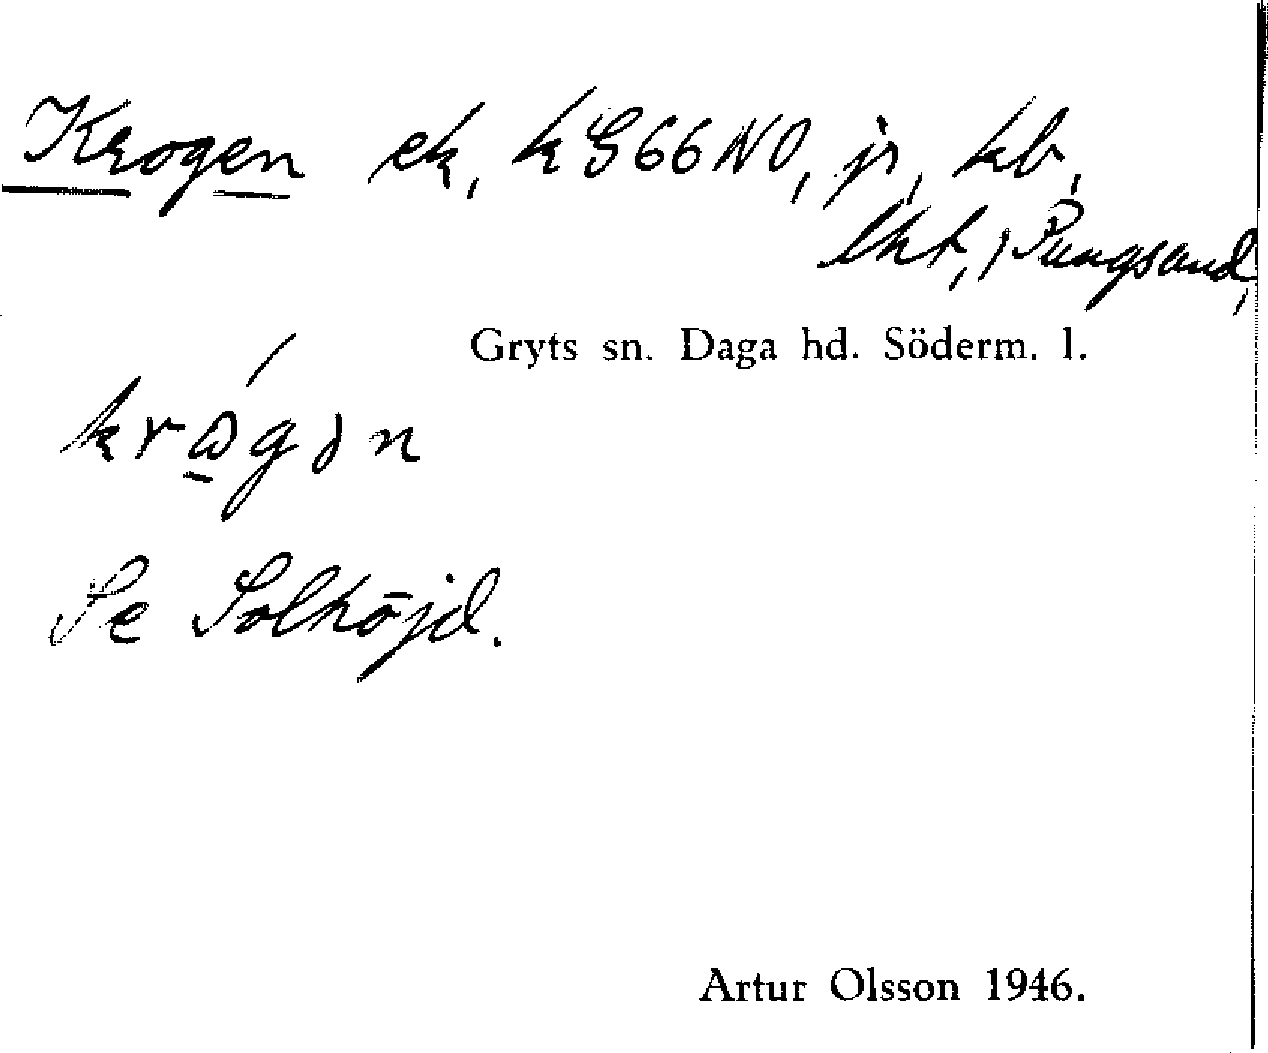 Krogen ek, k S66NO, jr, kb,
lht, Pungsund,
Gryts sn. Daga hd. Söderm. l.
Se Solhöjd.
Artur Olsson 1946.